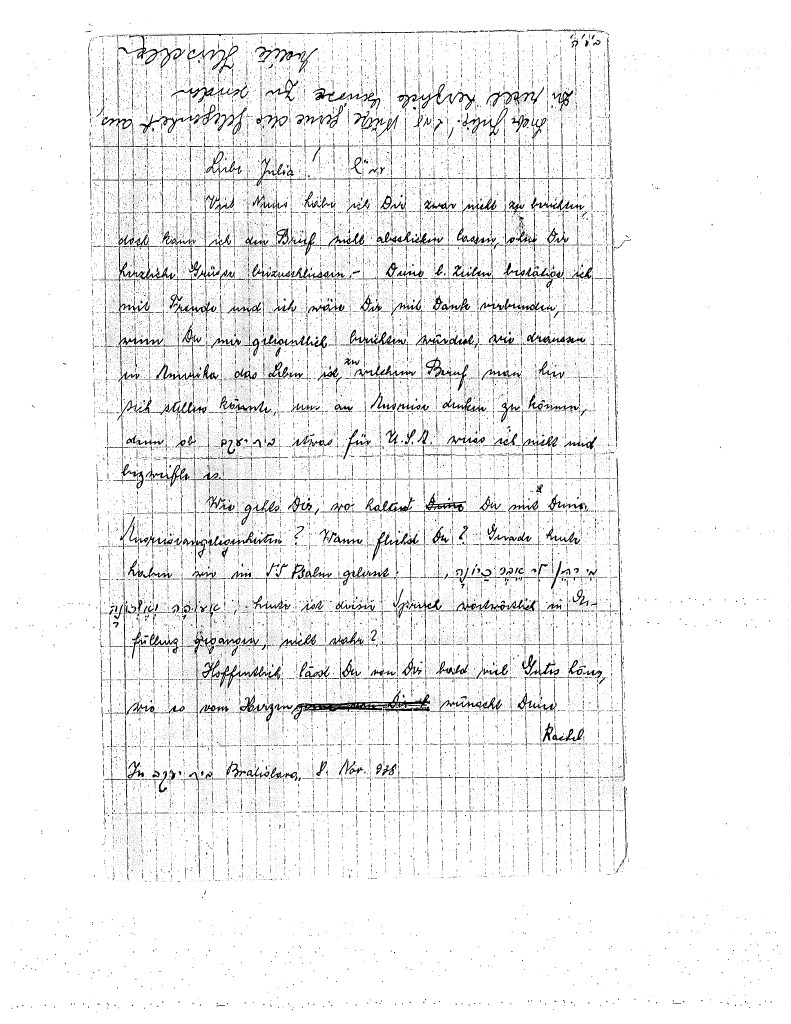 ב״ה
Liebe Julia! נ״י
Viel Neues habe ich Dir zwar nicht zu berichten,
doch kann ich den Brief nicht abschicken lassen, ohne Dir
herzliche Grüsse beizuschliessen.- Deine l. Zeilen bestätige ich
mit Freude und ich wäre Dir mit Dank verbunden,
wenn Du mir gelegentlich berichten würdest, wie draussen
in Amerika das Leben ist, zu welchem Beruf man hier
sich stellen könnte, um an Ausreise denken zu können,
denn ob בית יעקב etwas für U.S.A. weiss ich nicht und
bezweifle es.
Wie gehts Dir, wo haltest Deine Du mit Deinen
Ausreiseangelegenheiten? Wann fliehst Du? Gerade heute
haben wir im 55 Psalm gelernt: מי יתן לי אבר כיונה,
אעופה ואשכונה, heute ist dieser Spruch wortwörtlich in Er-
füllung gegangen, nicht wahr?
Hoffentlich lässt Du von Dir bald viel Gutes hören,
wie es vom Herzen gerne von Dir wünscht Deine
Rachel
In בית יעקב Bratislava, 8. Nov. 938
Julie! Ich gerne die Gelegenheit aus,
Dir recht herzliche Grüsse zu senden